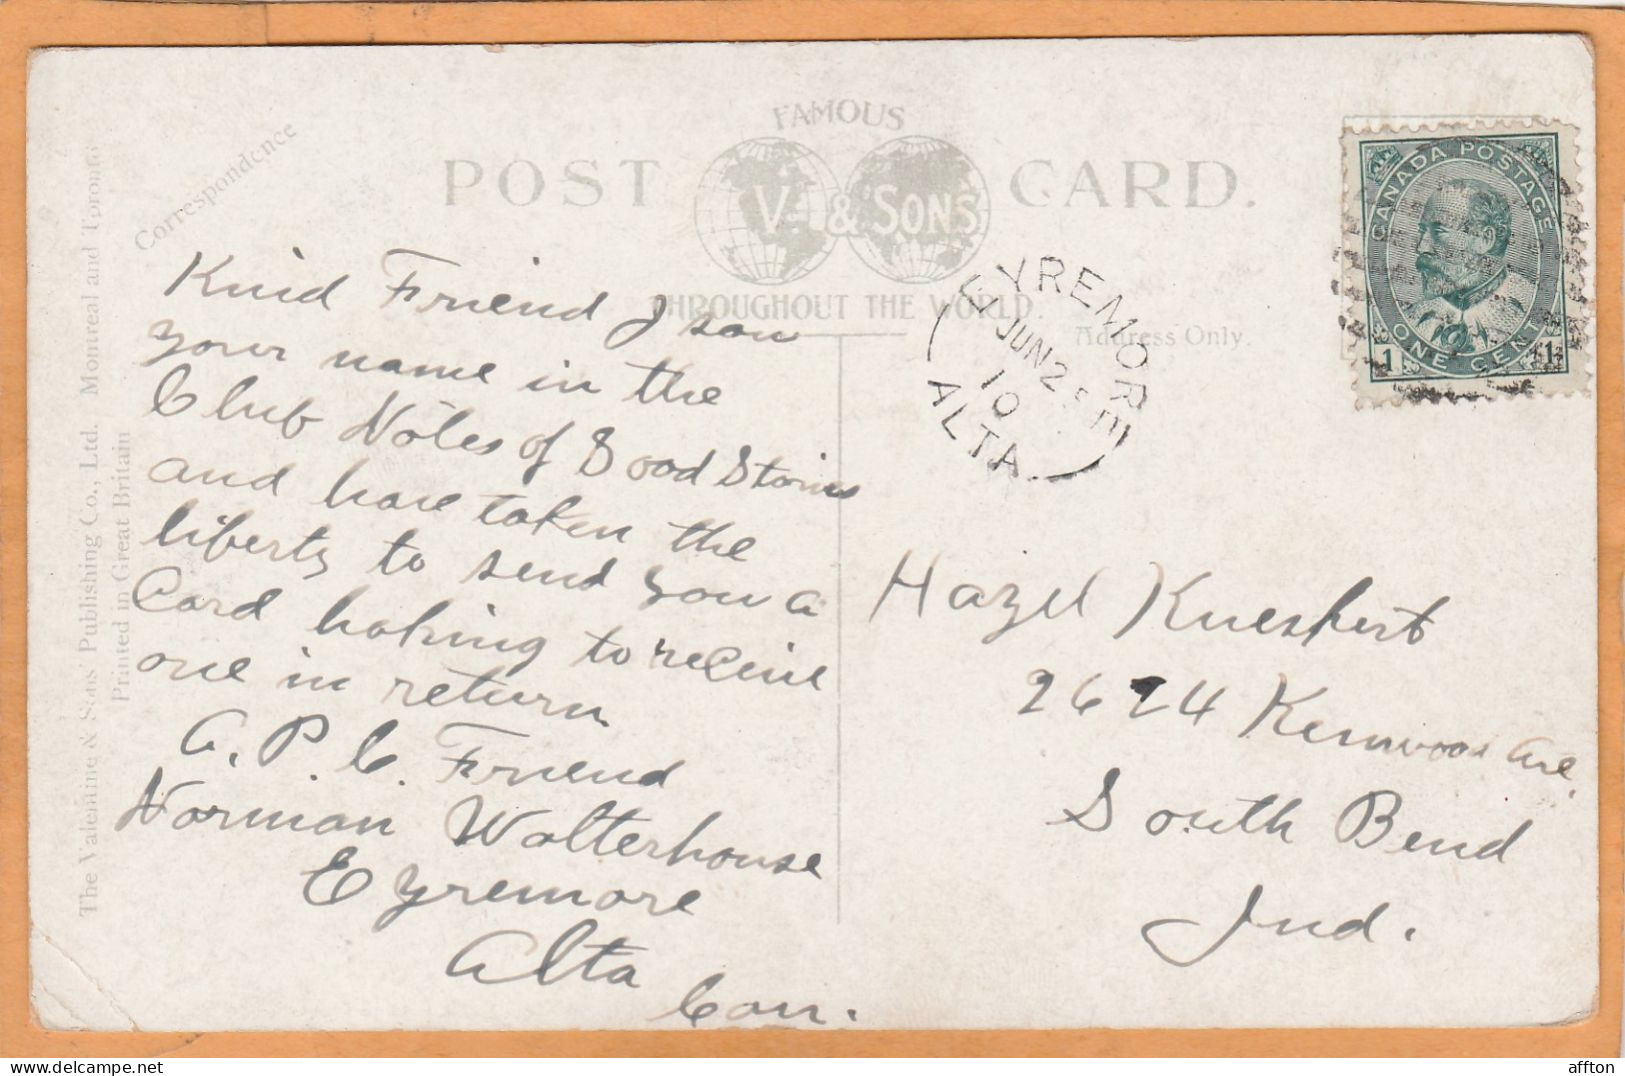 FAMOUS
POST CARD.
V. & SONS
THROUGHOUT THE WORLD.
Correspondence
Address Only.
The Valentine & Sons' Publishing Co., Ltd. Montreal and Toronto
Printed in Great Britain
CANADA POSTAGE
1 ONE CENT 1
EYREMORE
JUN 25
10
ALTA
Kind Friend I saw
your name in the
Club Notes of Good Stories
and have taken the
liberty to send you a
Card hoping to receive
one in return
A. P. C. Friend
Norman Walterhouse
Eyremore
Alta
Can.
Hazel Kueshert
2624 Kenwood Ave.
South Bend
Ind.
affton